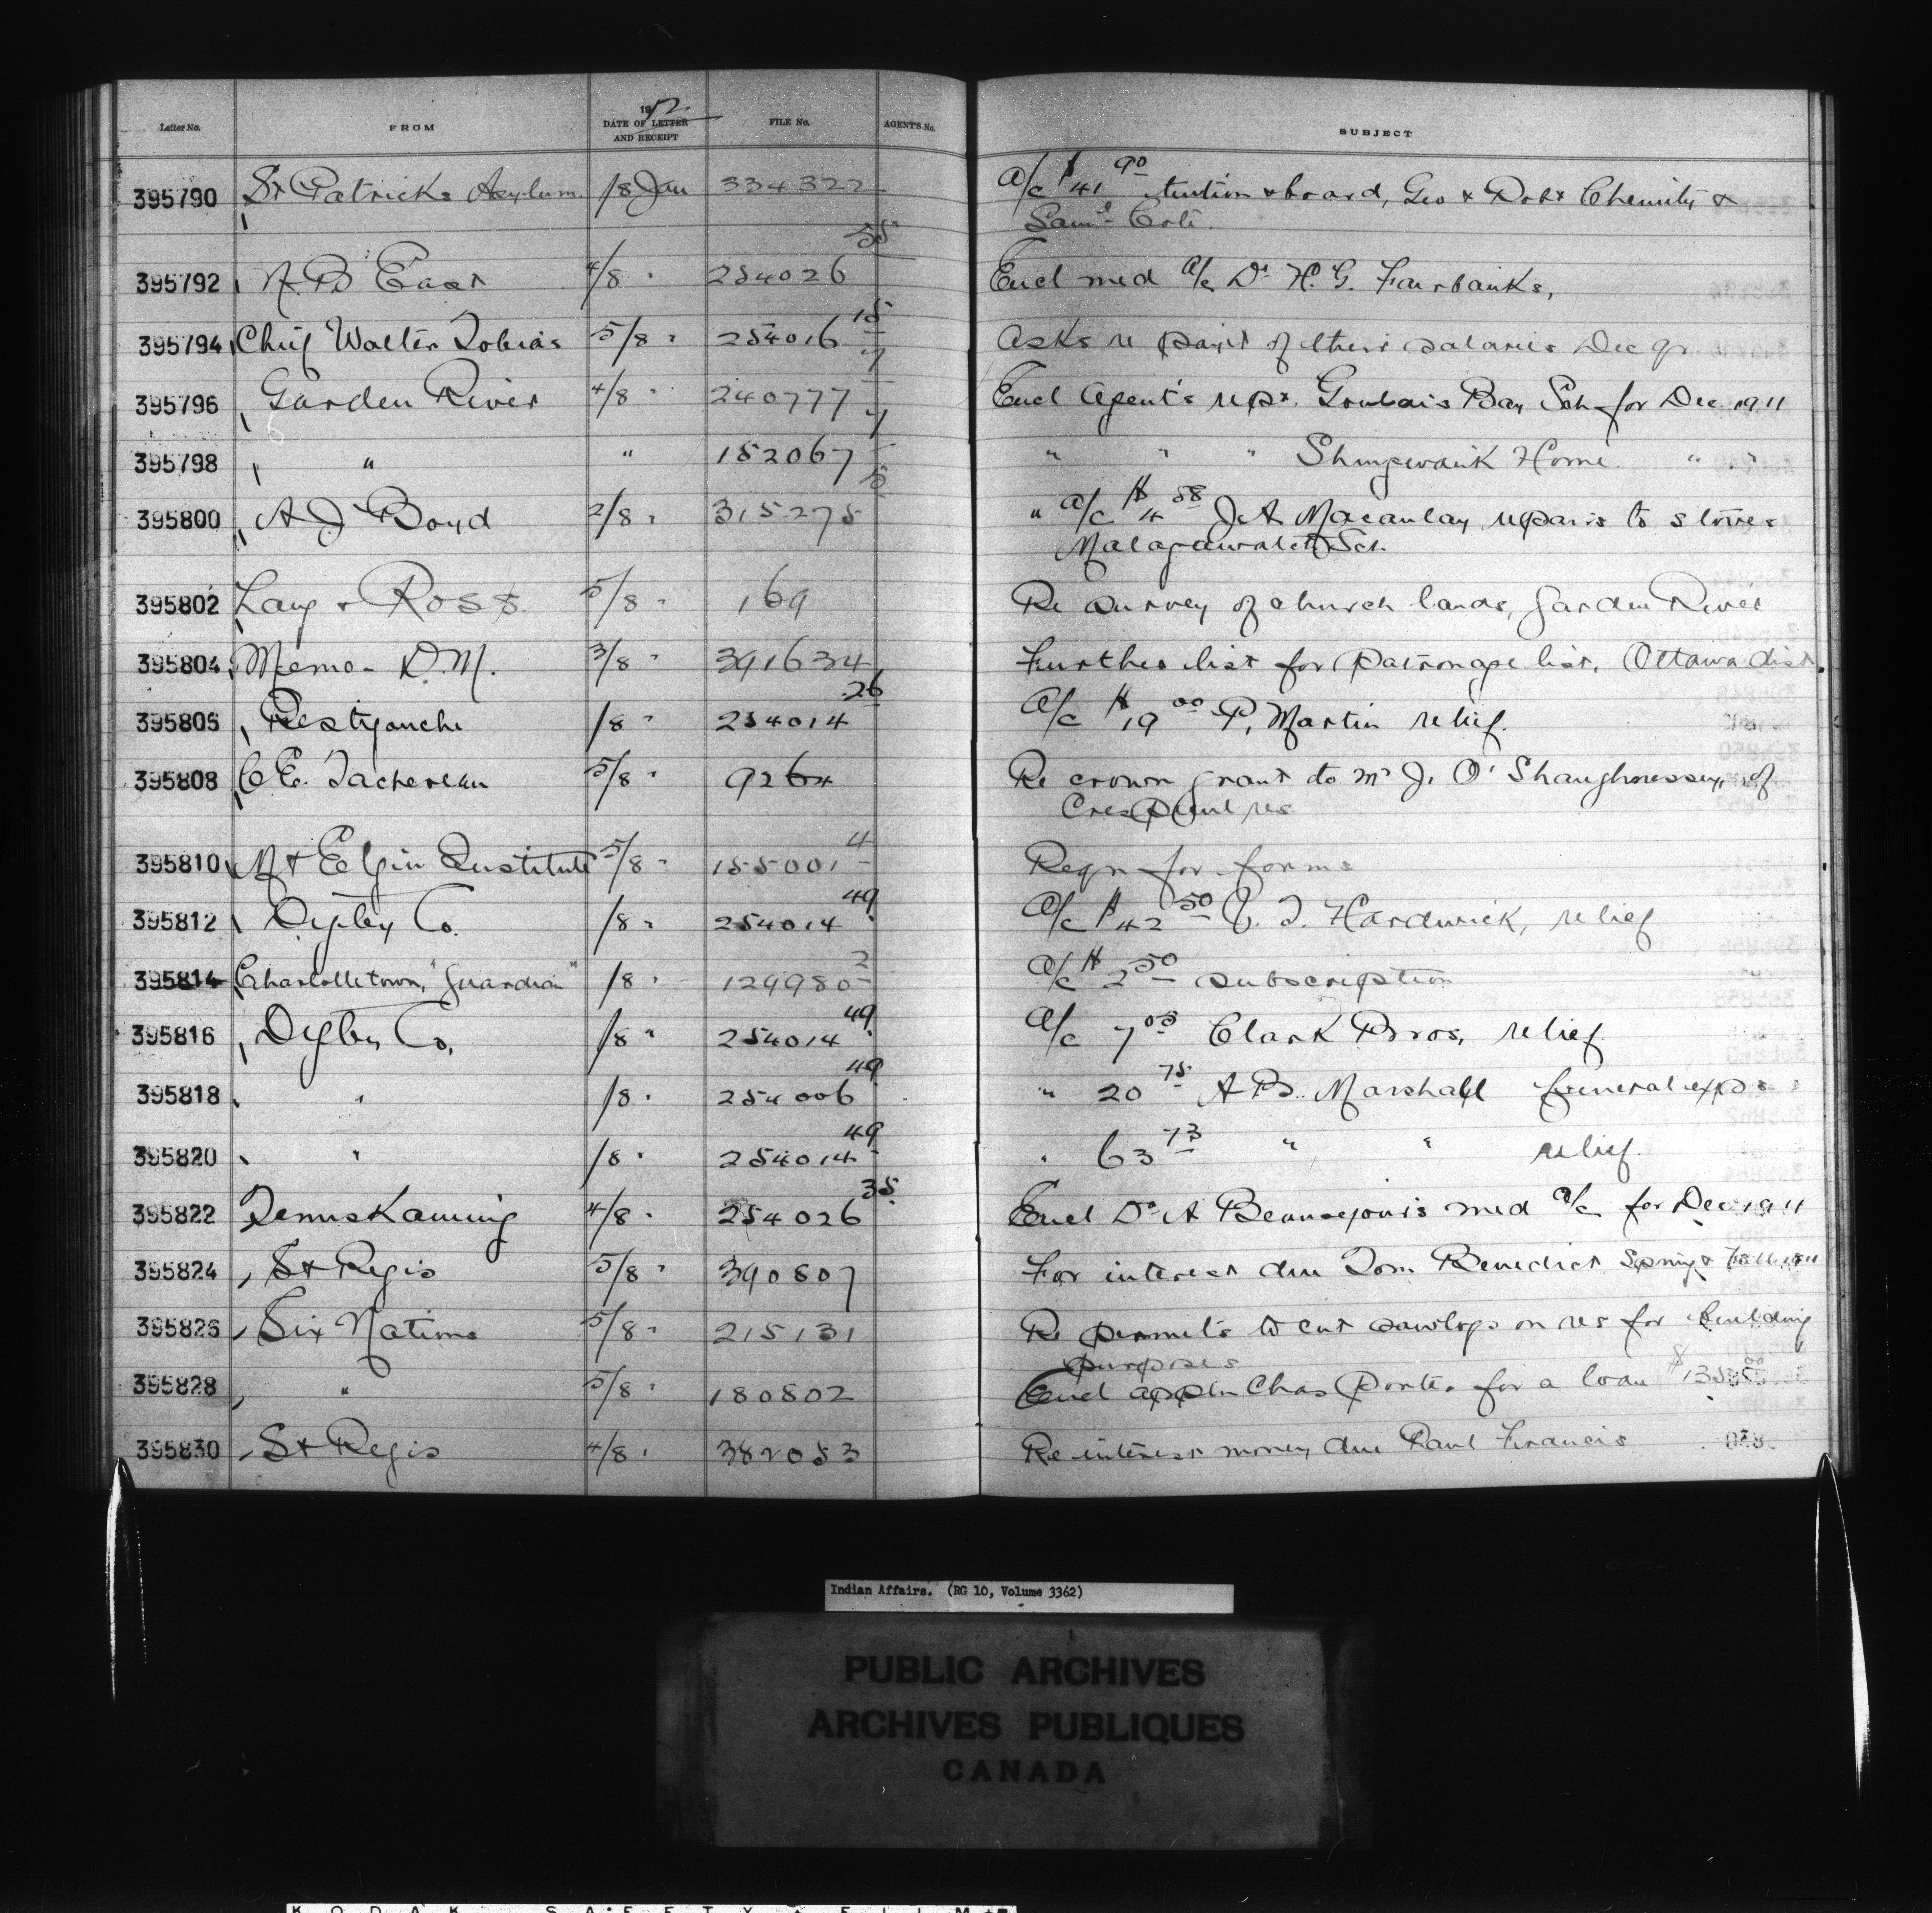 Letter No. FROM 1912 DATE OF LETTER AND RECEIPT FILE No. AGENTS No. SUBJECT
395790 St Patricks Asylum /8 Jan 334322 a/c $41 90 tuition & board, Geo & Robt &
Saml
395792 N.B East 4/8 " 254026 35 Encl med a/c Dr H. G. Fairbanks,
395794 Chief Walter Tobias 5/8 " 254016 15 Asks re payt of their salaries Dec qr
395796 Garden River 4/8 " 240777 7 Encl Agent's rept. Goulais Bay Sch for Dec 1911
395798 " " 182067 7 " " " Shingwauk Home " "
395800 A J Boyd 2/8 " 315275 " a/c $4 58 J A Macaulay repairs to stoves
Malagawatch Sch
395802 Lang & Ross 5/8 " 169 Re survey of church lands, Garden River
395804 Memo - D.M. 3/8 " 391634 Further list for patronage list, Ottawa dist.
395806 Restigouche /8 " 254014 26 a/c $19 00 P. Martin relief.
395808 C E. Tachereau 5/8 " 9264 Re crown grant to Mr J. O'Shaughnessey, of
res
395810 Mt Elgin Institute 5/8 " 155001 4 Reqn for forms
395812 Digby Co. /8 " 254014 49 a/c $42 50 J. T. Hardwick, relief
395814 Charlottetown, "Guardian" /8 " 129980 2 a/c $2 50 subscription
395816 Digby Co, /8 " 254014 49 a/c 7 03 Clark Bros, relief
395818 " /8 " 254006 49 " 20 75 A B. Marshall funeral exps
395820 " /8 " 254014 49 " 63 73 " " relief.
395822 Temiskaming 4/8 " 254026 35 Encl Dr A Beausejour's med a/c for Dec 1911
395824 St Regis 5/8 " 390807 For interest due Tom Benedict Spring & Fall 1911
395826 Six Nations 5/8 " 215131 Re permits to cut sawlogs on res for building
purposes
395828 " 5/8 " 180802 Encl appln Chas Porter for a loan
395830 St Regis 4/8 " 382053 Re interest money due Paul Francis
Indian Affairs. (RG 10, Volume 3362)
PUBLIC ARCHIVES
ARCHIVES PUBLIQUES
CANADA
KODAK SAFETY FILM